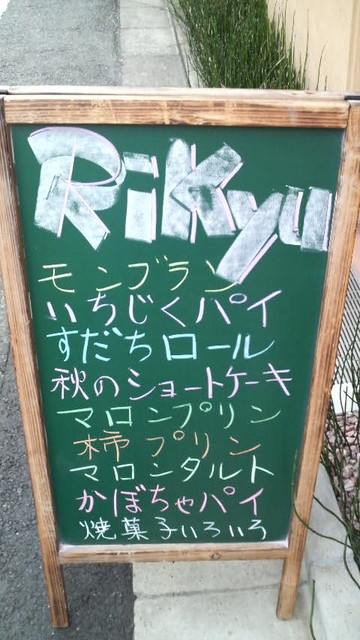 Rikyu
モンブラン
いちじくパイ
すだちロール
秋のショートケーキ
マロンプリン
柿プリン
マロンタルト
かぼちゃパイ
焼菓子いろいろ